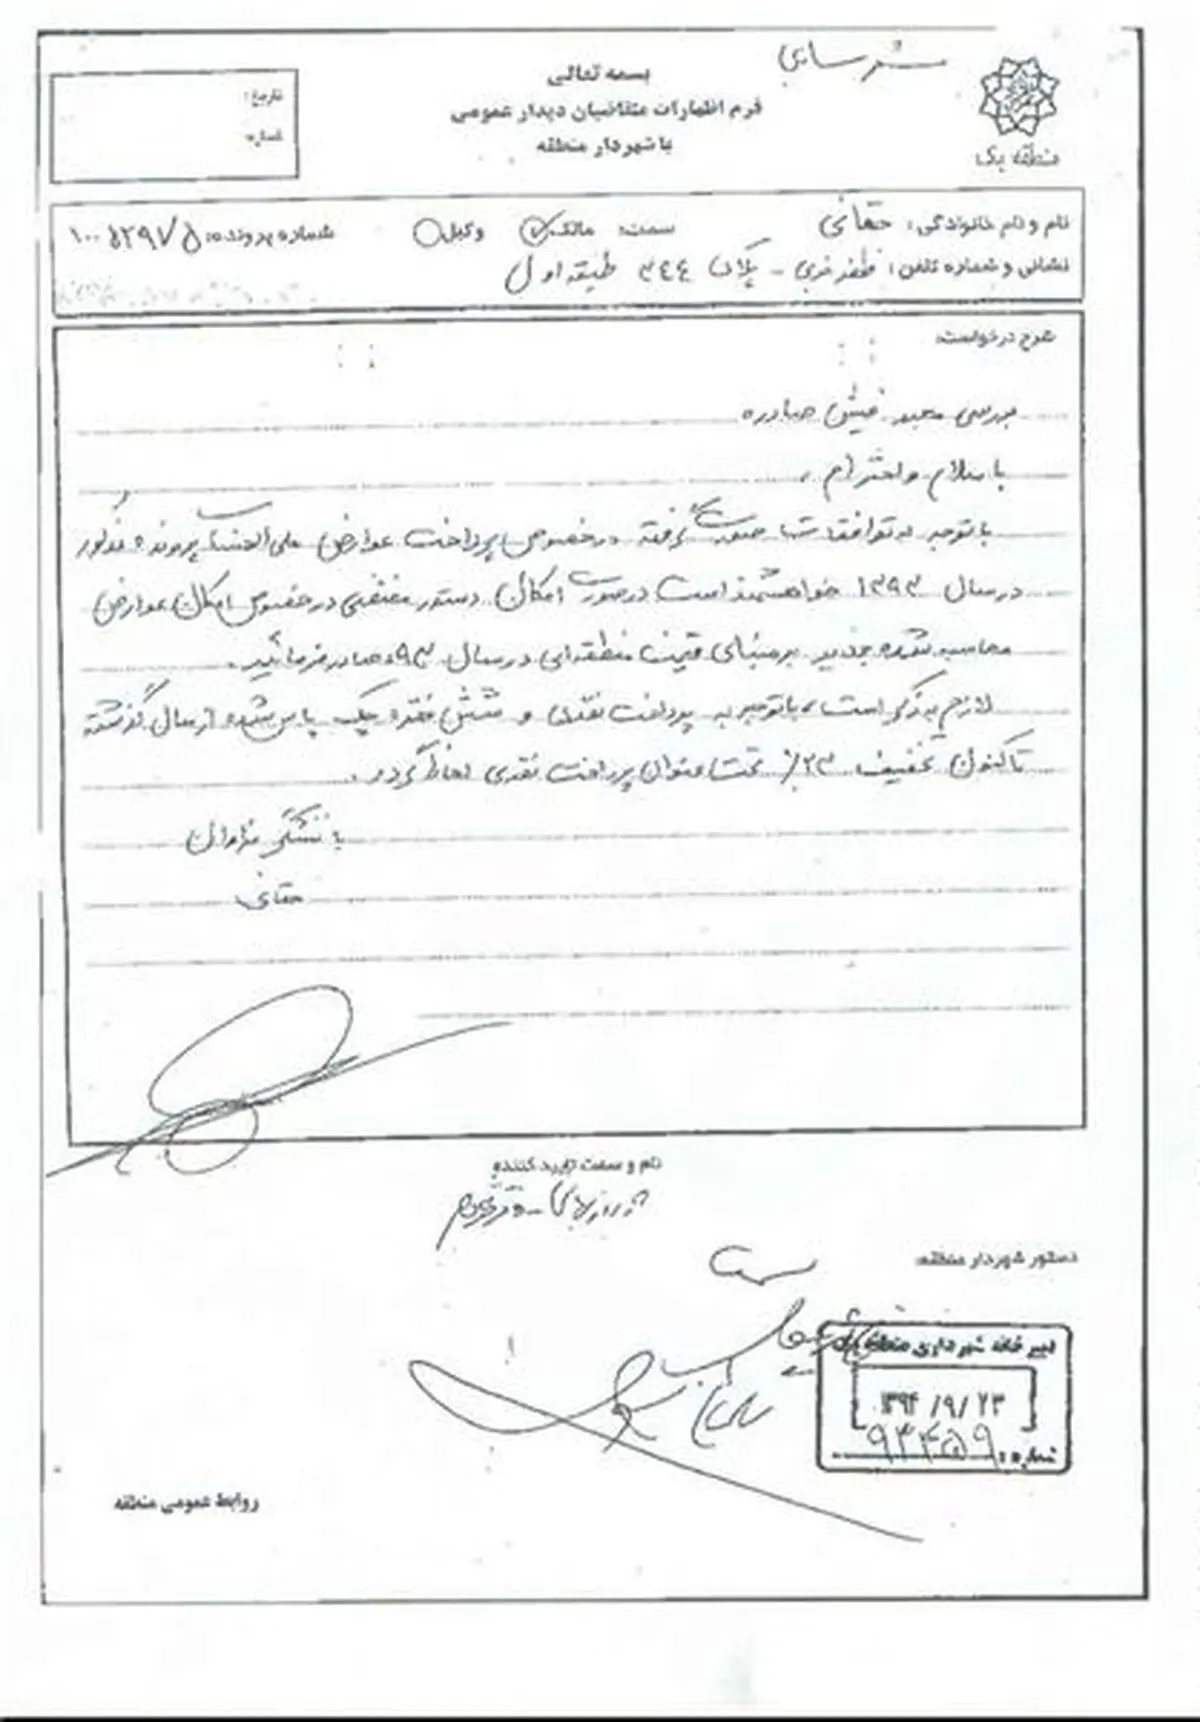 شهرسازی
بسمه تعالی
فرم اظهارات متقاضیان دیدار عمومی
با شهردار منطقه
تاریخ:
شماره:
منطقه یک
نام و نام خانوادگی: حقانی سمت: مالک وکیل شماره پرونده:
نشانی و شماره تلفن: ظفر غربی - پلاک ۳۴۴ طبقه اول
شرح درخواست:
بررسی مجدد فیش صادره
با سلام و احترام ،
با توجه به توافقات صورت گرفته در خصوص پرداخت عوارض علی الحساب پرونده مذکور
در سال ۱۳۹۳ خواهشمند است در صورت امکان دستور مقتضی در خصوص امکان عوارض
محاسبه شده جدید بر مبنای قیمت منطقه ای در سال ۹۳ صادر فرمائید.
لازم بذکر است ، با توجه به پرداخت نقدی و شش فقره چک پاس شده از سال گذشته
تا کنون تخفیف ۲۳٪ تحت عنوان پرداخت نقدی لحاظ گردد.
با تشکر فراوان
حقانی
نام و سمت تایید کننده
دستور شهردار منطقه:
دبیرخانه شهرداری منطقه یک
۱۳۹۴/۹/۲۳
شماره: ۹۳۴۵۹
روابط عمومی منطقه